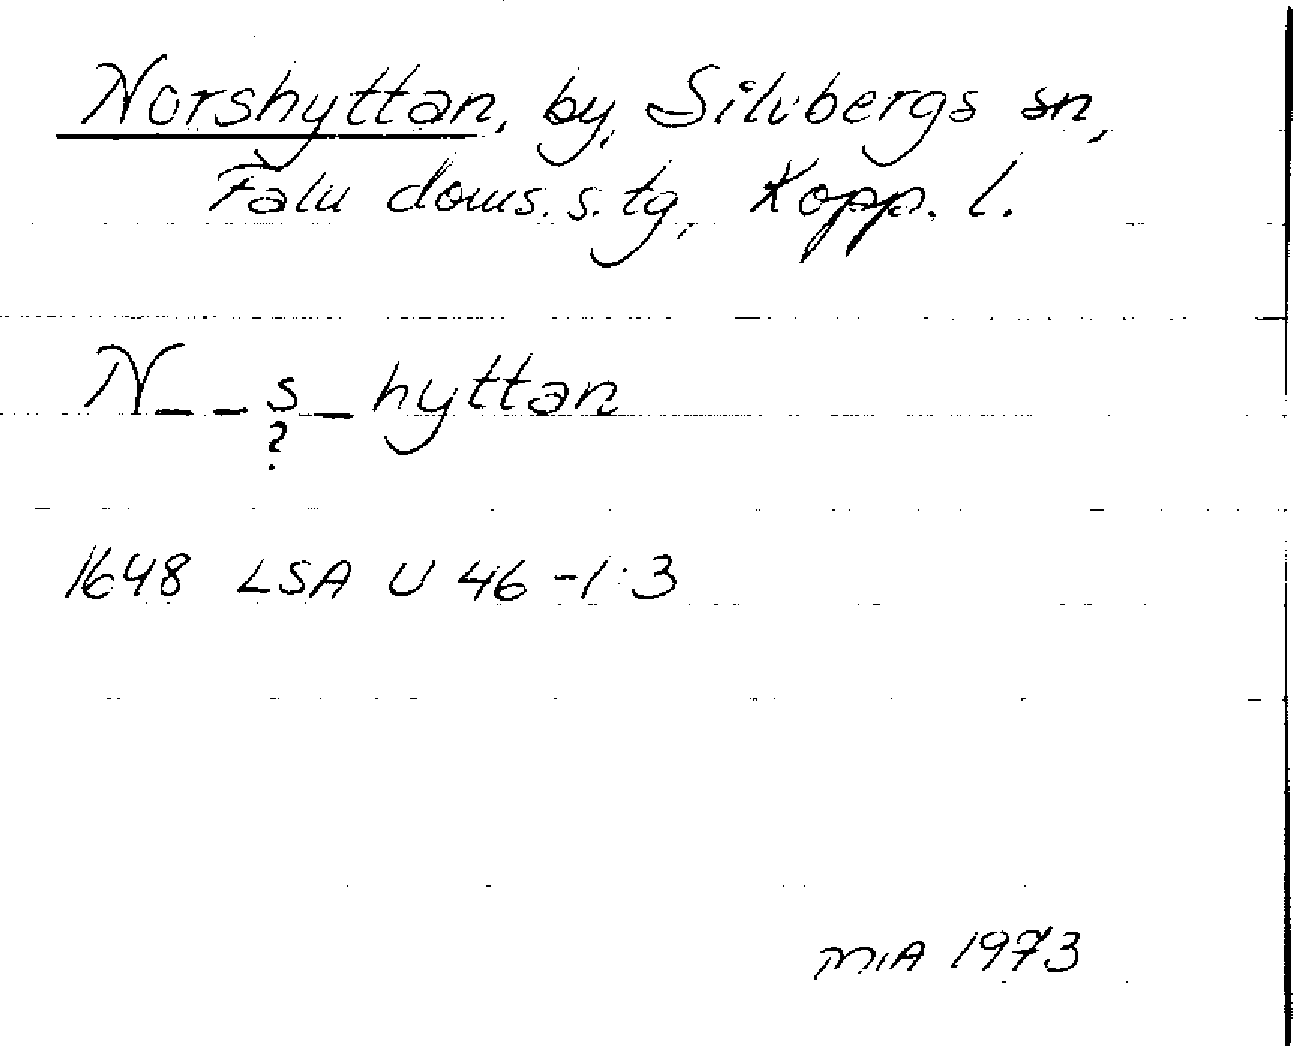 Norshyttan, by, Silvbergs sn,
Falu doms. s. tg, Kopp. l.
N _ _ s _ hyttan
?
1648 LSA U 46 -1:3
MIA 1973